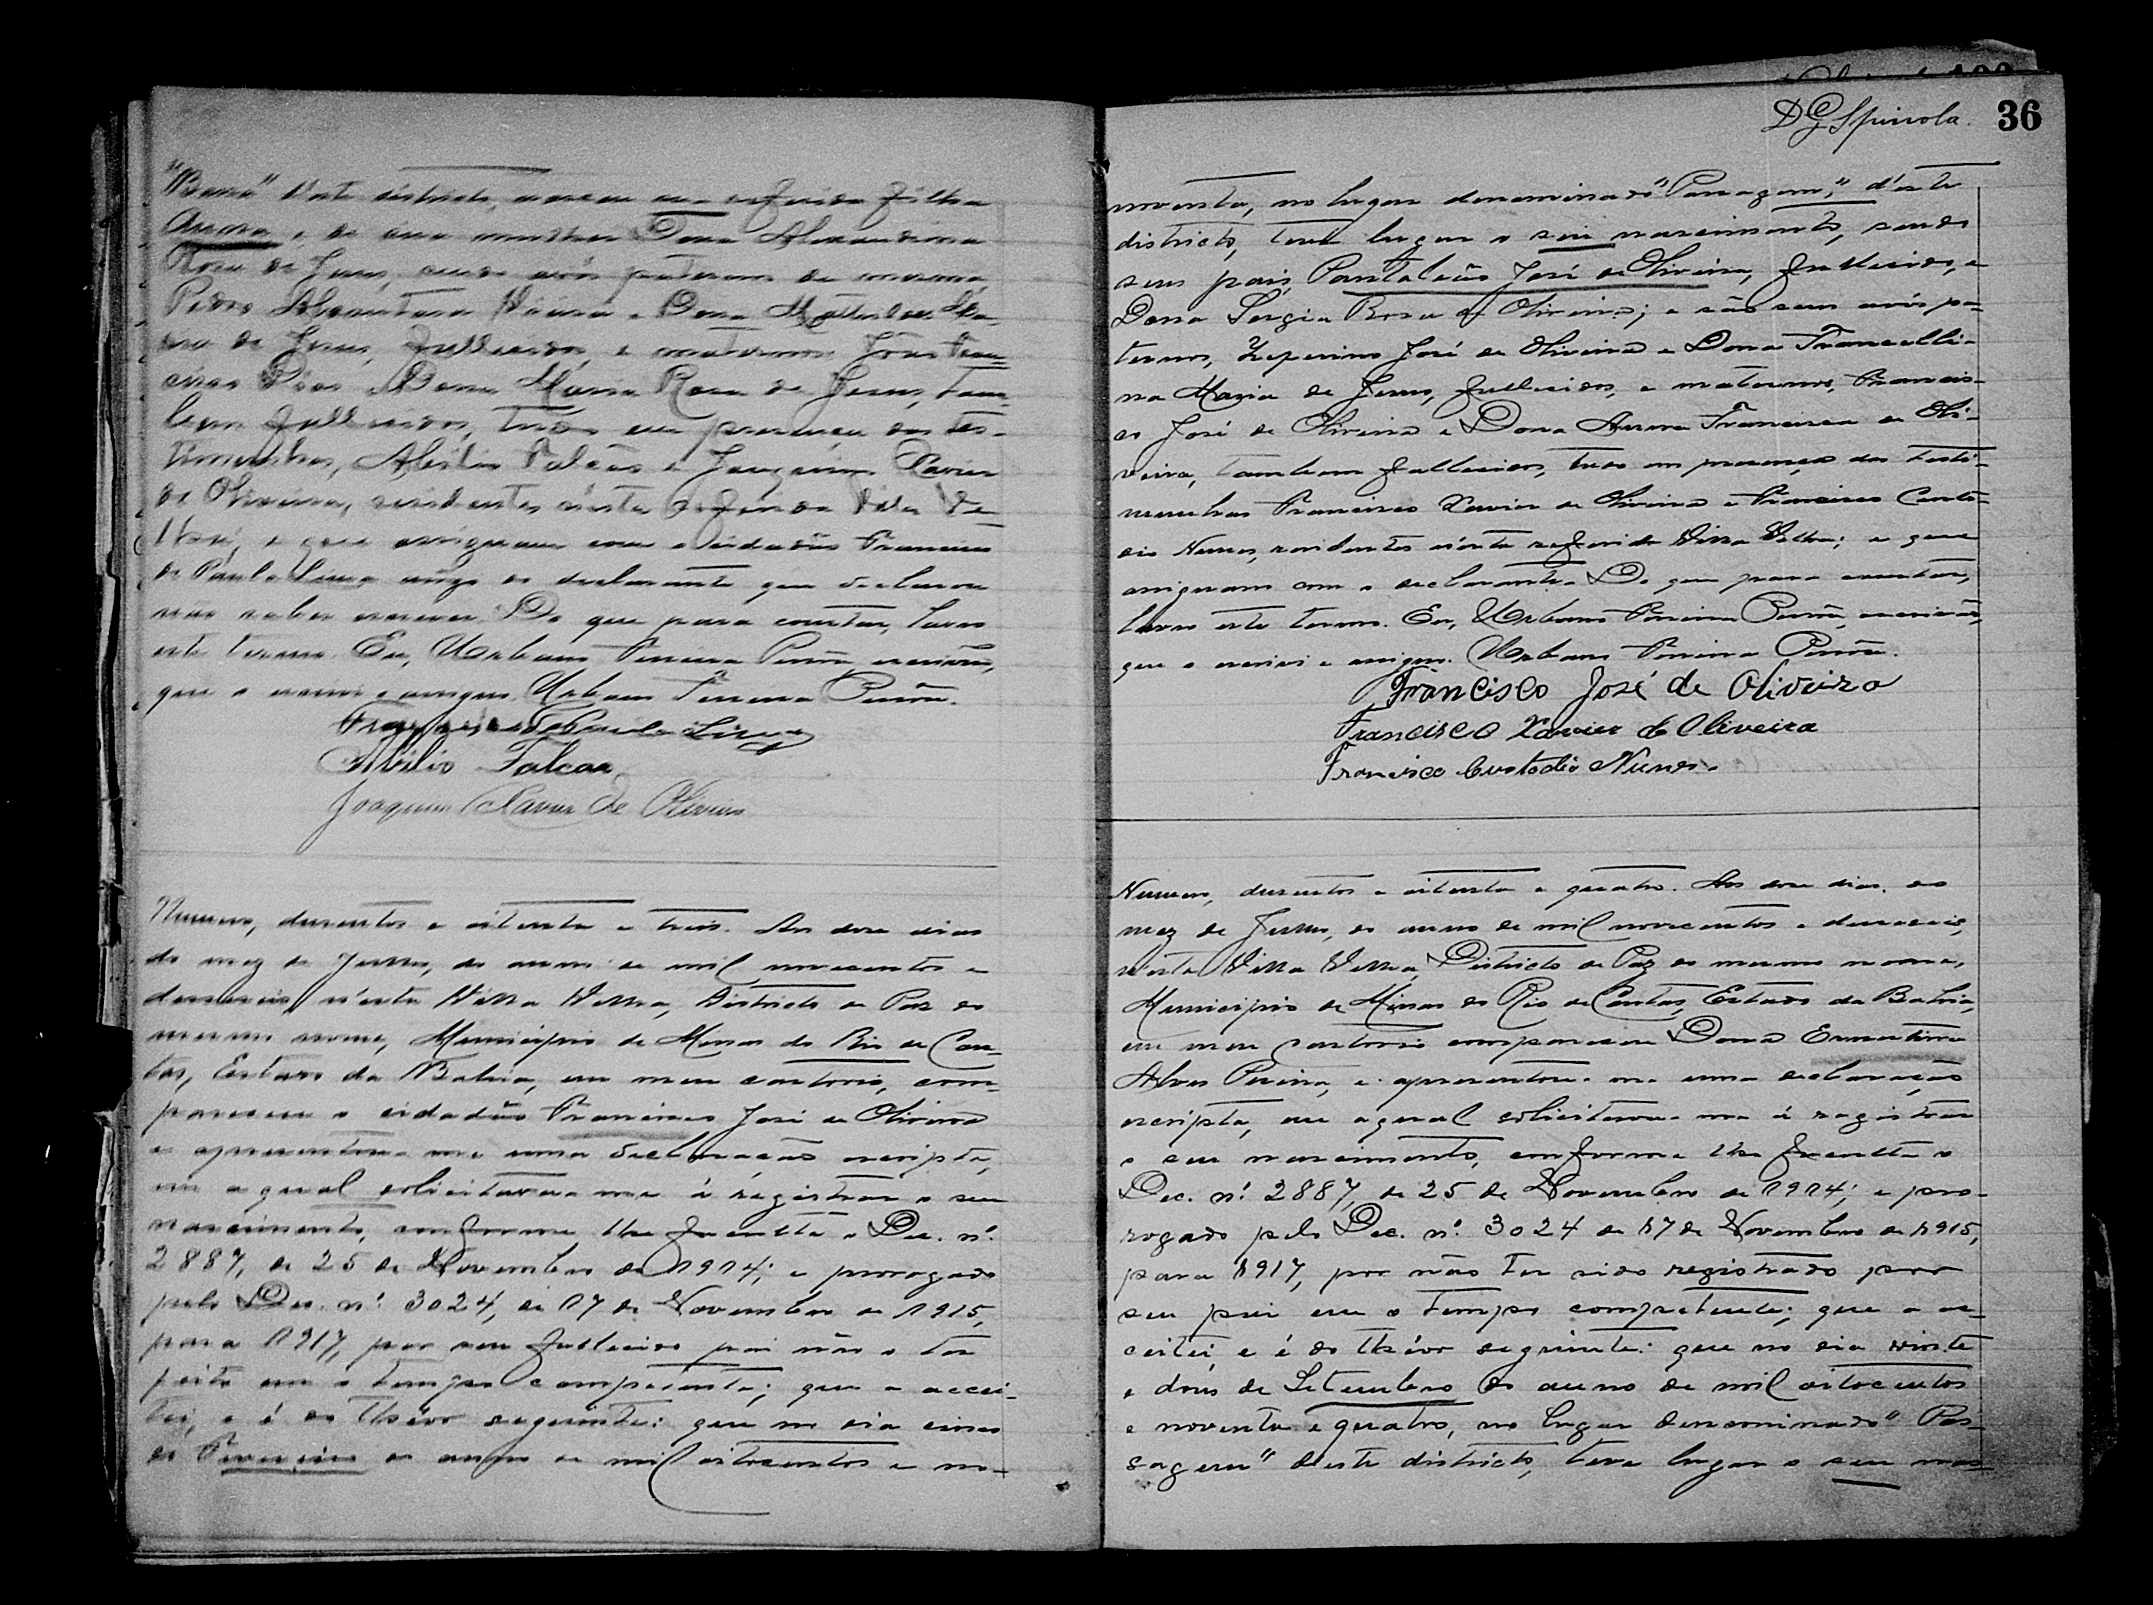 "         " d'este districto, nasceu a referida filha
      e de sua mulher Dona Alexandrina
Rosa de Jesus, sendo avós paternos da mesma,
Pedro Alcantara Vieira e Dona
de Jesus, fallecidos, e maternos João Fran-
cisco Dias e Dona Maria Rosa de Jesus, tam-
bem fallecidos, tudo em presença das tes-
timunhas, Abilio Falcão e Joaquim Xavier
de Oliveira, residentes n'esta referida Villa Ve-
lha; e que assignam com o cidadão Francisco
de Paula Lima a rogo do declarante que declarou
não saber escrever. Do que para constar, lavro
este termo. Eu, Urbano Pereira        escrivão,
que o escrevi e assigno. Urbano Pereira
Francisco de Paula Lima
Abilio Falcão
Joaquim Xavier de Oliveira
Numero, duzentos e oitenta e tres. Aos doze dias
do mez de Junho, do anno de mil novecentos e
deseseis, n'esta Villa Velha, Districto de Paz do
mesmo nome, Municipio de Minas do Rio de Con-
tas, Estado da Bahia, em meu cartorio, com-
pareceu o cidadão Francisco José de Oliveira
e apresentou-me uma declaração escripta,
em a qual solicitava-me á registrar o seu
nascimento, conforme lhe faculta o Dec. nº.
2887, de 25 de Novembro de 1914; e prorogado
pelo Dec. nº. 3024, de 17 de Novembro de 1915,
para 1917, por seu fallecido pai não o ter
feito em o tempo competente; que a accei-
tei, e é do theôr seguinte: que no dia cinco
de Fevereiro do anno de mil oitocentos e no-
DG Spinola. 36
noventa, no lugar denominado "Passagem," d'este
districto, teve lugar o seu nascimento, sendo
seus pais, Pantaleão José de Oliveira, fallecido, e
Dona Sérgia Rosa de Oliveira; e são seus avós pa-
ternos, Zeferino José de Oliveira e Dona Francelli-
na Maria de Jesus, fallecidos, e maternos, Francis-
co José de Oliveira e Dona Anna Francisca de Oli-
veira, tambem fallecidos, tudo em presença das testi-
munhas Francisco Xavier de Oliveira e Francisco Custo-
dio Nunes, residentes n'esta referida Villa Velha; e que
assignam com o declarante. Do que para constar,
lavro este termo. Eu, Urbano Pereira        escrivão,
que o escrevi e assigno. Urbano Pereira
Francisco José de Oliveira
Francisco Xavier de Oliveira
Francisco Custodio Nunes.
Numero, duzentos e oitenta e quatro. Aos doze dias, do
mez de Junho, do anno de mil novecentos e deseseis,
n'esta Villa Velha, Districto de Paz do mesmo nome,
Municipio de Minas do Rio de Contas, Estado da Bahia,
em meu cartorio compareceu Dona Ernestina
Alves Pereira, e apresentou-me uma declaração
escripta, em a qual solicitava-me á registrar
o seu nascimento, conforme lhe faculta o
Dec. nº. 2887, de 25 de Novembro de 1914; e pro-
rogado pelo Dec. nº. 3024 de 17 de Novembro de 1915,
para 1917, por não ter sido registrado por
seu pai em o tempo competente; que a ac-
ceitei, e é do theôr seguinte: que no dia vinte
e dous de Setembro do anno de mil oitocentos
e noventa e quatro, no lugar denominado "Pas-
sagem" d'este districto, teve lugar o seu nas-